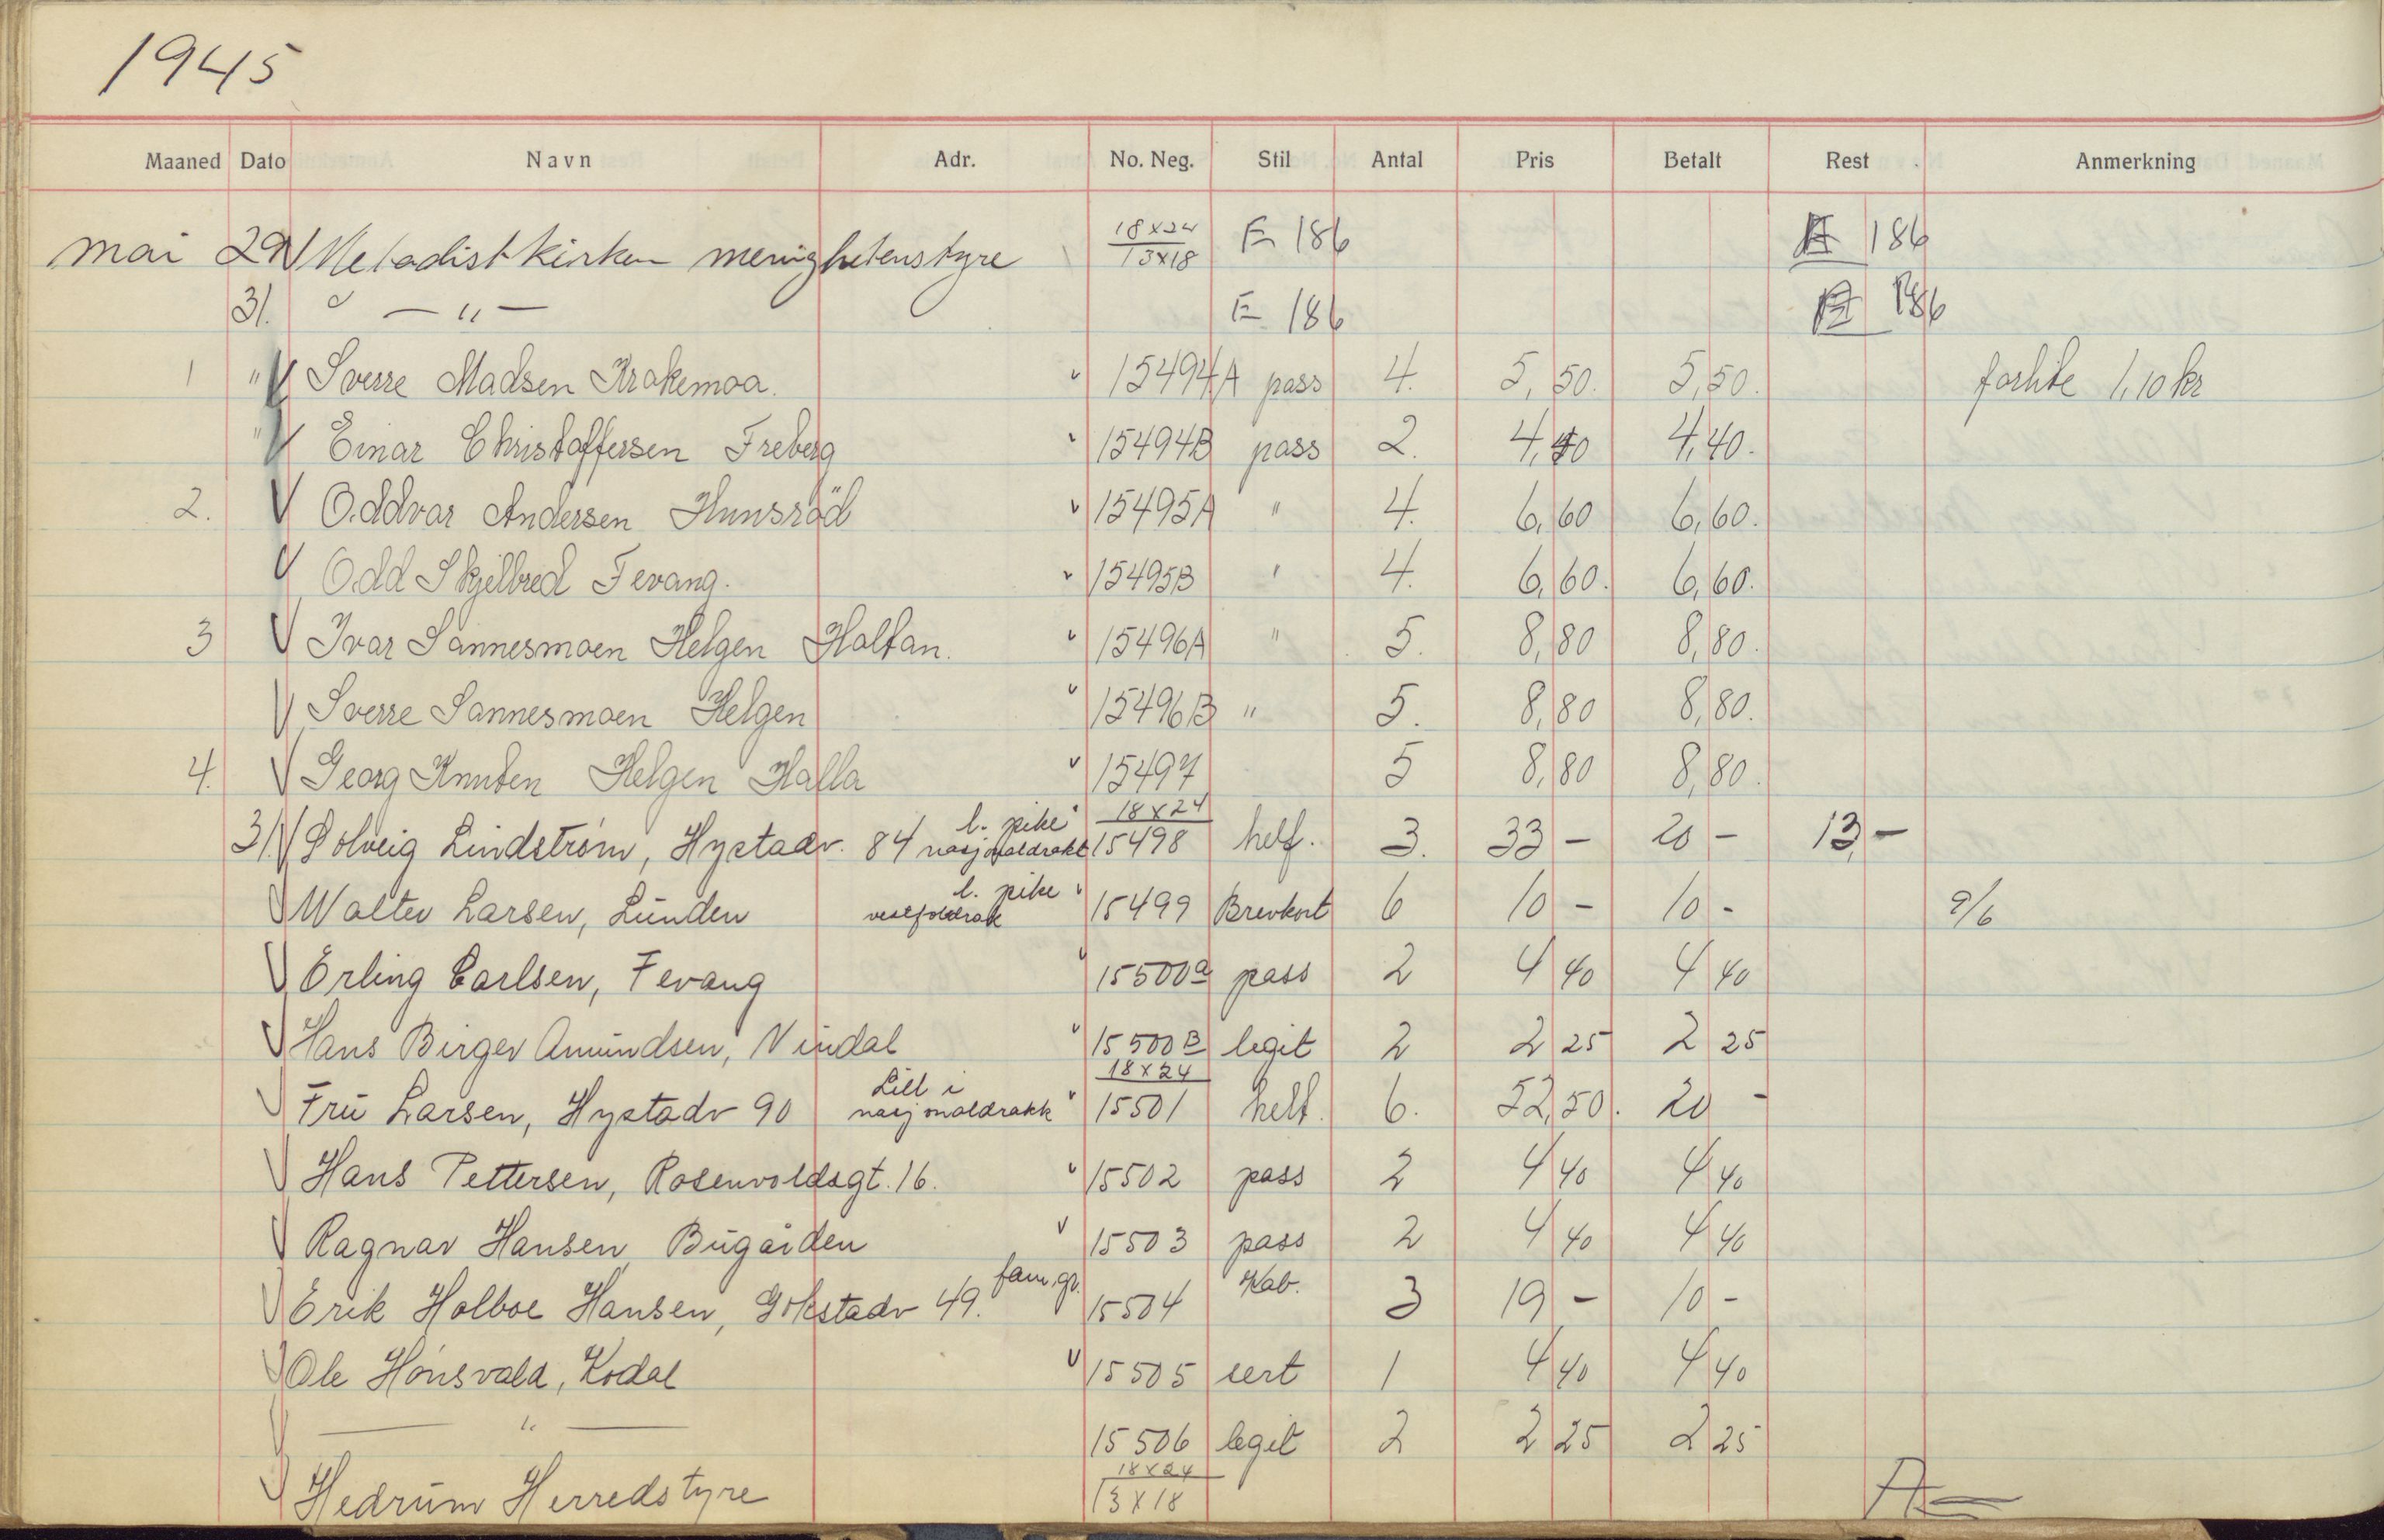 1945
Maaned Dato Navn Adr. No. Neg. Stil Antal Pris Betalt Rest Anmerkning
mai 29 V Metodistkirken menighetenstyre 18x24 / 13x18 E 186 186
31. " — " — E 186 186
1 " V Sverre Madsen Krakemoa. v 15494A pass 4. 5,50. 5,50. 1,10 kr
" V Einar Christoffersen Freberg v 15494B pass 2. 4,40 4,40.
2. V Oddvar Andersen Hunsröd v 15495A " 4. 6,60 6,60.
V Odd Skjelbred Fevang. v 15495B " 4. 6,60. 6,60.
3 V Ivar Sannesmoen Helgen Holtan. v 15496A " 5. 8,80 8,80.
V Sverre Sannesmoen Helgen v 15496B " 5. 8,80 8,80.
4. V Georg Knutsen Helgen Halla v 15497 5 8,80 8,80.
l. pike v 18x24
31. V Solveig Lindström, Hystadv. 84 nasjonaldrakt 15498 helf. 3. 33 - 20 - 13,-
l. pike v
V Walter Larsen, Lunden 15499 Brevkort 6 10 - 10 - 9/6
V Erling Carlsen, Fevang v 15500a pass 2 4 40 4 40
V Hans Birger Amundsen, Vindal v 15500B legit 2 2 25 2 25
Lill i 18x24
V Fru Larsen, Hystadv 90 nasjonaldrakt v 15501 helf. 6. 52,50. 20 -
V Hans Pettersen, Rosenvoldsgt. 16. v 15502 pass 2 4 40 4 40
V Ragnar Hansen, Bugården v 15503 pass 2 4 40 4 40
V Erik Holboe Hansen, Gokstadv 49. fam.gr. 15504 Kab. 3 19 - 10 -
V Ole Hönsvald, Kodal v 15505 sert 1 4 40 4 40
V — " — 15506 legit 2 2 25 2 25
V Hedrum Herredstyre 18x24 / 13x18